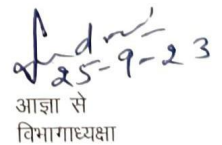 25-9-23
आज्ञा से
विभागाध्यक्षा